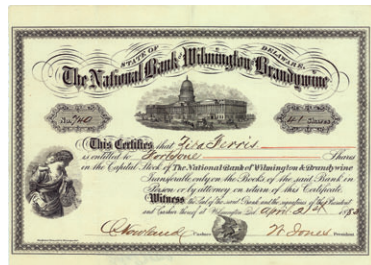 STATE OF DELAWARE.
The National Bank of Wilmington & Brandywine
No. 740
41 Shares
This Certifies that Ziba Ferris
is entitled to Forty One Shares
in the Capital Stock of The National Bank of Wilmington & Brandywine
Transferable only on the Books of the said Bank in
Person or by attorney on return of this Certificate.
Witness the Seal of the said Bank and the signatures of the President
and Cashier thereof at Wilmington Del. April 21st
Cashier
President